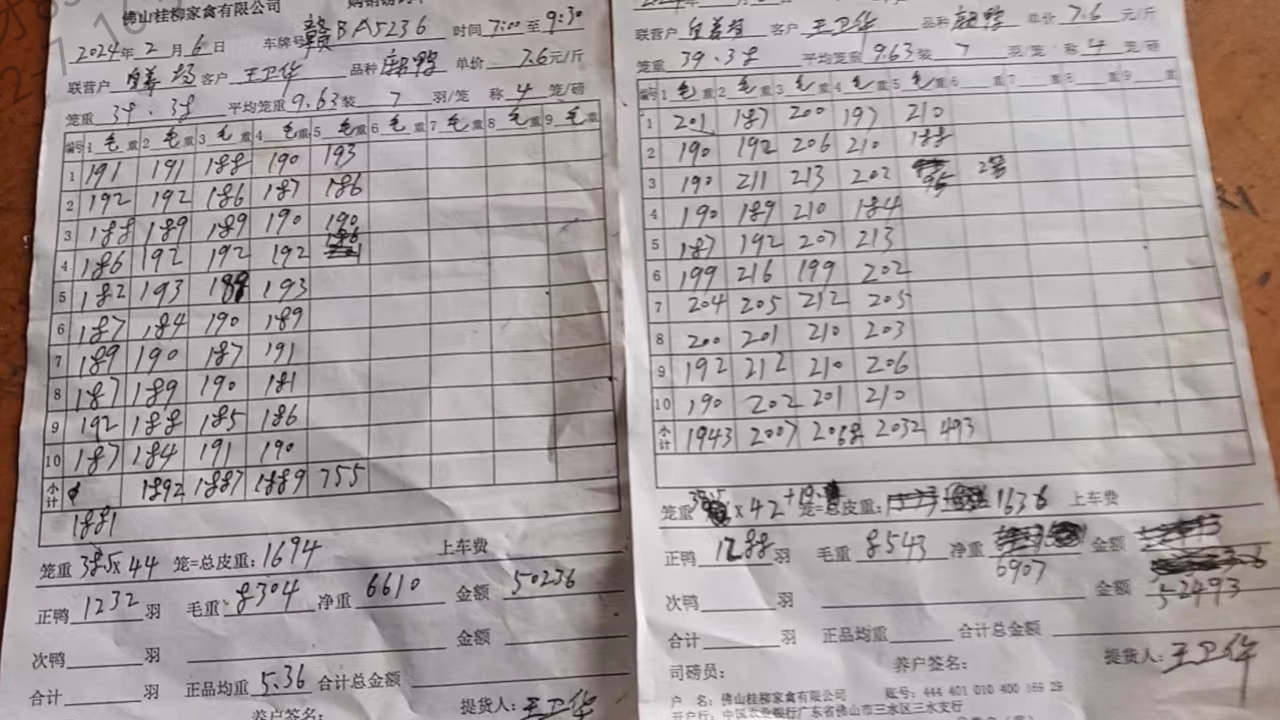 佛山桂柳家禽有限公司
2024年2月6日 车牌号 赣BA5236 时间 7:00 至 9:30
联营户 自养场 客户 王卫华 品种 麻鸭 单价 7.6元/斤
笼重 38.38 平均笼重 9.63 装 7 羽/笼 称 4 笼/磅
编号 1 毛重 2 毛重 3 毛重 4 毛重 5 毛重 6 毛重 7 毛重 8 毛重 9 毛重
1 191 191 188 190 193
2 192 192 186 187 186
3 188 189 189 190 190
4 186 192 192 192 186
5 182 193 188 193
6 187 184 190 189
7 189 190 187 191
8 187 189 190 181
9 192 188 185 186
10 187 184 191 190
小计 1892 1887 1889 755
1881
笼重 38.5×44 笼=总皮重:1694 上车费
正鸭 1232 羽 毛重 8304 净重 6610 金额 50236
次鸭 羽 金额
合计 羽 正品均重 5.36 合计总金额
养户签名: 提货人:王卫华
联营户 自养场 客户 王卫华 品种 麻鸭 单价 7.6 元/斤
笼重 39.38 平均笼重 9.63 装 7 羽/笼 称 4 笼/磅
编号 1 毛重 2 毛重 3 毛重 4 毛重 5 毛重 6 重 7 重 8 重 9 重
1 201 187 200 197 210
2 190 192 206 210 188
3 190 211 213 202 95
4 190 189 210 184
5 187 192 207 213
6 199 216 199 202
7 204 205 212 205
8 200 201 210 203
9 192 212 210 206
10 190 202 201 210
小计 1943 2007 2068 2032 493
笼重 38.5 ×42 笼=总皮重: 1636 上车费
正鸭 1288 羽 毛重 8543 净重 6907 金额
次鸭 羽 金额 52493
合计 羽 正品均重 合计总金额
司磅员: 养户签名: 提货人:王卫华
户 名:佛山桂柳家禽有限公司 账号:444 401 010 400 169 29
开户行:中国农业银行广东省佛山市三水区三水支行